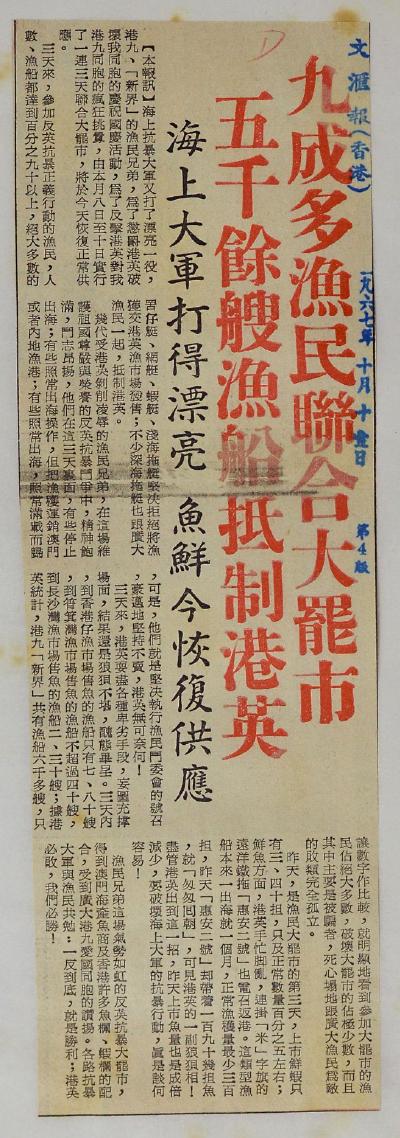 文滙報(香港)
一九六七年 十月十壹日 第4版
D
九成多漁民聯合大罷市
五千餘艘漁船抵制港英
海上大軍打得漂亮 魚鮮今恢復供應
【本報訊】海上抗暴大軍又打了漂亮一役,
港九、「新界」的漁民兄弟,爲了懲罰港英破
壞我同胞的慶祝國慶活動,爲了反擊港英對我
港九同胞的瘋狂挑釁,由本月八日至十日實行
了一連三天聯合大罷市,將於今天恢復正常供
應。
三天來,參加反英抗暴正義行動的漁民,人
數、漁船都達到百分之九十以上,絕大多數的
罟仔艇、網艇、蝦艇、淺海拖艇堅決拒絕將漁
獲交港英漁市場發售;不少深海拖艇也跟廣大
漁民一起,抵制港英。
幾代受港英剝削凌辱的漁民兄弟,在這場維
護祖國尊嚴與榮譽的反英抗暴鬥爭中,精神飽
滿,鬥志昂揚,他們在這三天裏面,有些停止
出海;有些照常出海操作,但把漁獲運銷澳門
或者內地漁港;有些照常出海,照常滿載而歸
,可是,他們就是堅決執行漁民鬥委會的號召
,豪邁地堅持不賣,港英無可奈何!
三天來,港英耍盡各種卑劣手段,妄圖充撑
場面,結果還是狼狽不堪,醜態畢呈。三天內
,到香港仔漁市場售魚的漁船只有七、八十艘
,到筲箕灣漁市場售魚的漁船不超過四十艘,
到長沙灣漁市場售魚的漁船二、三十艘;據港
英統計,港九「新界」共有漁船六千多艘,只
讓數字作比較,就明顯地看到參加大罷市的漁
民佔絕大多數,破壞大罷市的佔極少數,而且
其中主要是被騙者,死心塌地跟廣大漁民爲敵
的敗類完全孤立。
昨天,是漁民大罷市的第三天,上市鮮蝦只
有三、四十担,只及正常數量百分之五左右;
鮮魚方面,港英手忙脚亂,連掛「米」字旗的
遠洋鐵拖「惠安一號」也電召返港。這類型漁
船本來一出海就一個月,正常漁穫量最少三百
担,昨天「惠安一號」却帶着一百九十幾担魚
,就「匆匆囘朝」,可見港英的一副狼狽相!
儘管港英出到這一招,昨天上市魚量也是成倍
減少,要破壞海上大軍的抗暴行動,眞是談何
容易!
漁民兄弟這場氣勢如虹的反英抗暴大罷市,
得到澳門海產魚商及香港許多魚欄、蝦欄的配
合,受到廣大港九愛國同胞的讚揚。各路抗暴
大軍與漁民共勉:一反到底,就是勝利;港英
必敗,我們必勝!